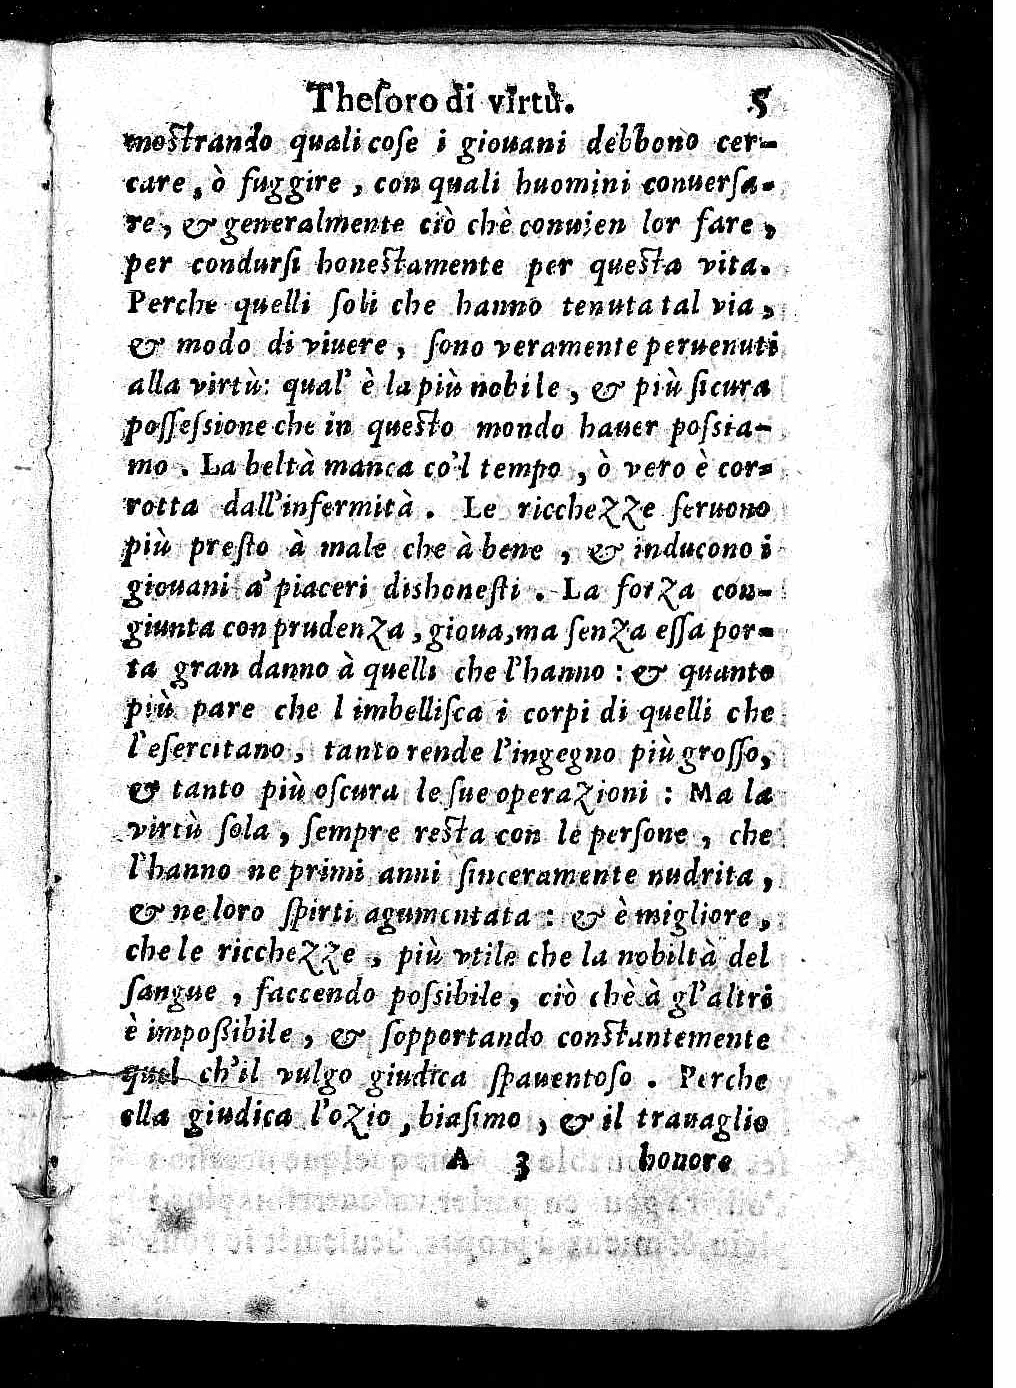 Theſoro di virtù. 5
moſtrando quali coſe i giouani debbono cer-
care, ò fuggire, con quali huomini conuerſa-
re, & generalmente ciò chè conuien lor fare,
per condurſi honeſtamente per queſta vita.
Perche quelli ſoli che hanno tenuta tal via,
& modo di viuere, ſono veramente peruenuti
alla virtù: qual' è la più nobile, & più ſicura
poſſeſsione che in queſto mondo hauer poſsia-
mo. La beltà manca co'l tempo, ò vero è cor-
rotta dall'infermità. Le ricchezze ſeruono
più preſto à male che à bene, & inducono i
giouani a' piaceri dishoneſti. La forza con-
giunta con prudenza, gioua, ma ſenza eſſa por-
ta gran danno à quelli che l'hanno: & quanto
più pare che l imbelliſca i corpi di quelli che
l'eſercitano, tanto rende l'ingegno più groſſo,
& tanto più oſcura le ſue operazioni: Ma la
virtù ſola, ſempre reſta con le perſone, che
l'hanno ne primi anni ſinceramente nudrita,
& ne loro ſpirti agumentata: & è migliore,
che le ricchezze, più vtile che la nobiltà del
ſangue, faccendo poſsibile, ciò chè à gl'altri
è impoßibile, & ſopportando conſtantemente
quel ch'il vulgo giudica ſpauentoſo. Perche
ella giudica l'ozio, biaſimo, & il trauaglio
A 3 honore